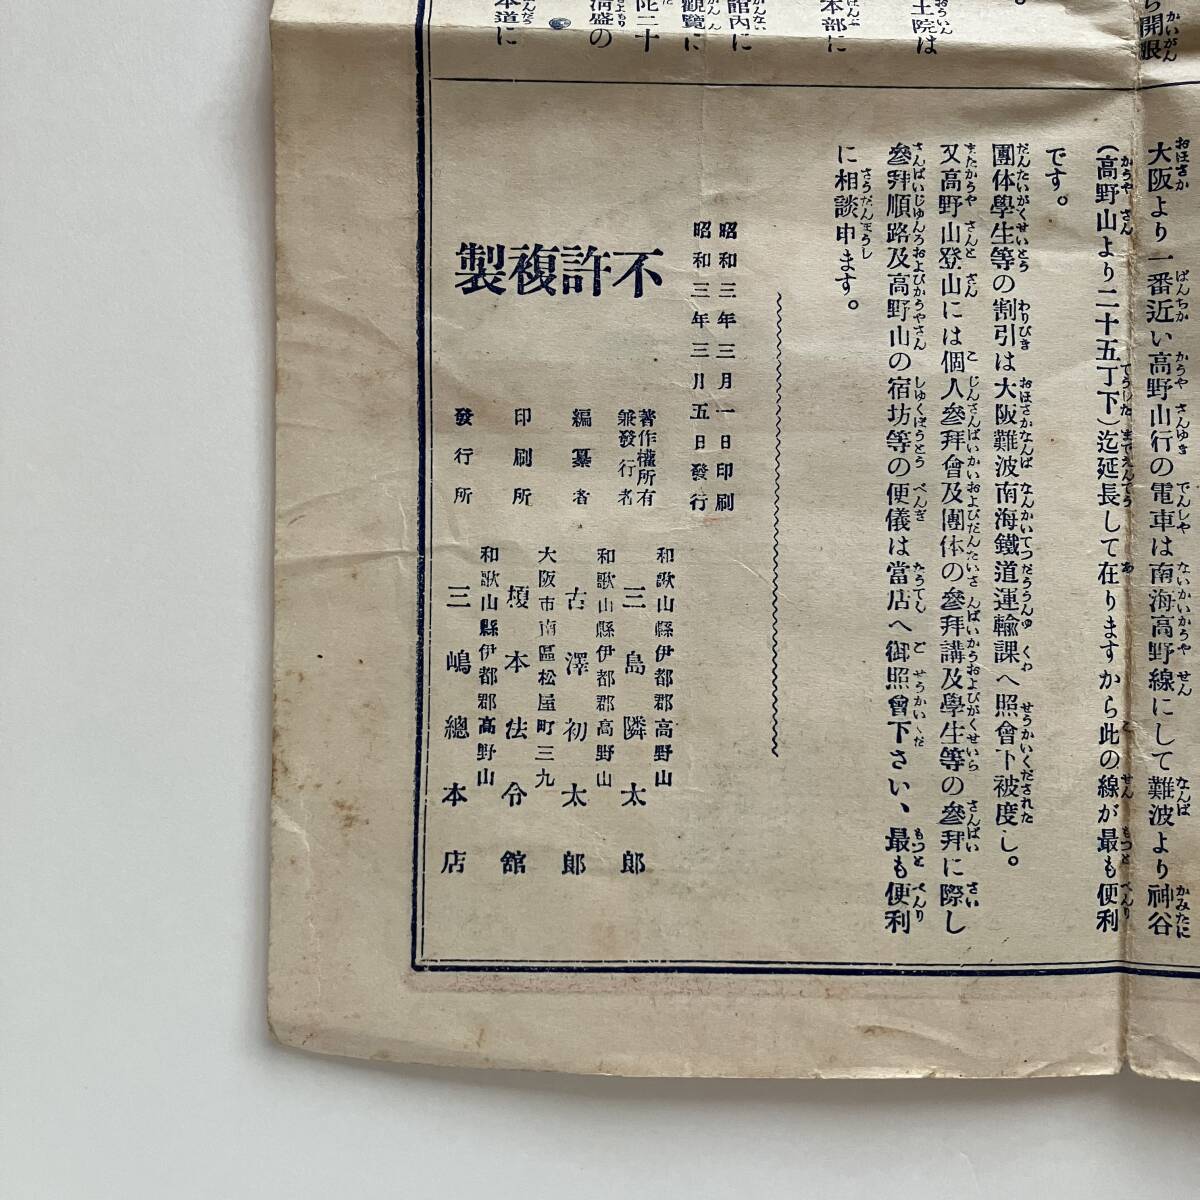 開眼
土院は
本部に
館内に
観覧に
陀二十
清盛の
本道に
大阪より一番近い高野山行の電車は南海高野線にして難波より神谷
(高野山より二十五丁下)迄延長して在りますから此の線が最も便利
です。
團体學生等の割引は大阪難波南海鐵道運輸課へ照會下被度し。
又高野山登山には個人參拜會及團体の參拜講及學生等の參拜に際し
參拜順路及高野山の宿坊等の便儀は當店へ御照會下さい、最も便利
に相談申ます。
昭和三年三月一日印刷
昭和三年三月五日發行
不許複製
著作權所有
兼發行者
和歌山縣伊都郡高野山
三島隣太郎
編纂者
和歌山縣伊都郡高野山
古澤初太郎
印刷所
大阪市南區松屋町三九
榎本法令館
發行所
和歌山縣伊都郡高野山
三嶋總本店